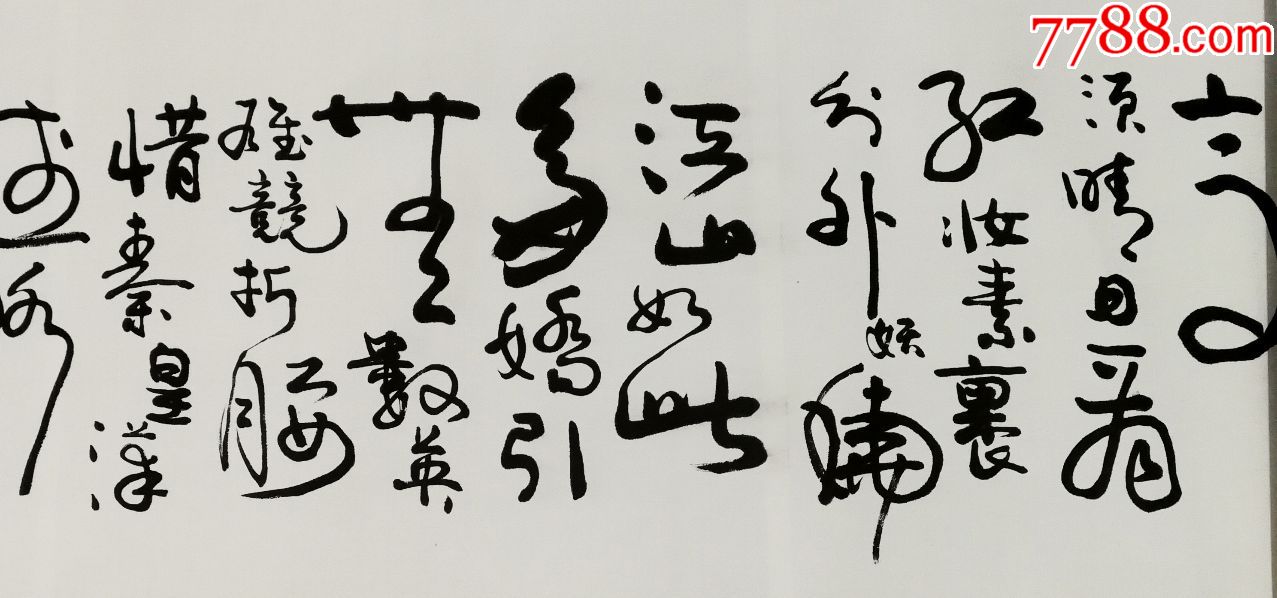 7788.com
高
須晴日看
红妆素裹
分外妖嬈
江山如此
多嬌引
無數英
雄競折腰
惜秦皇漢
武